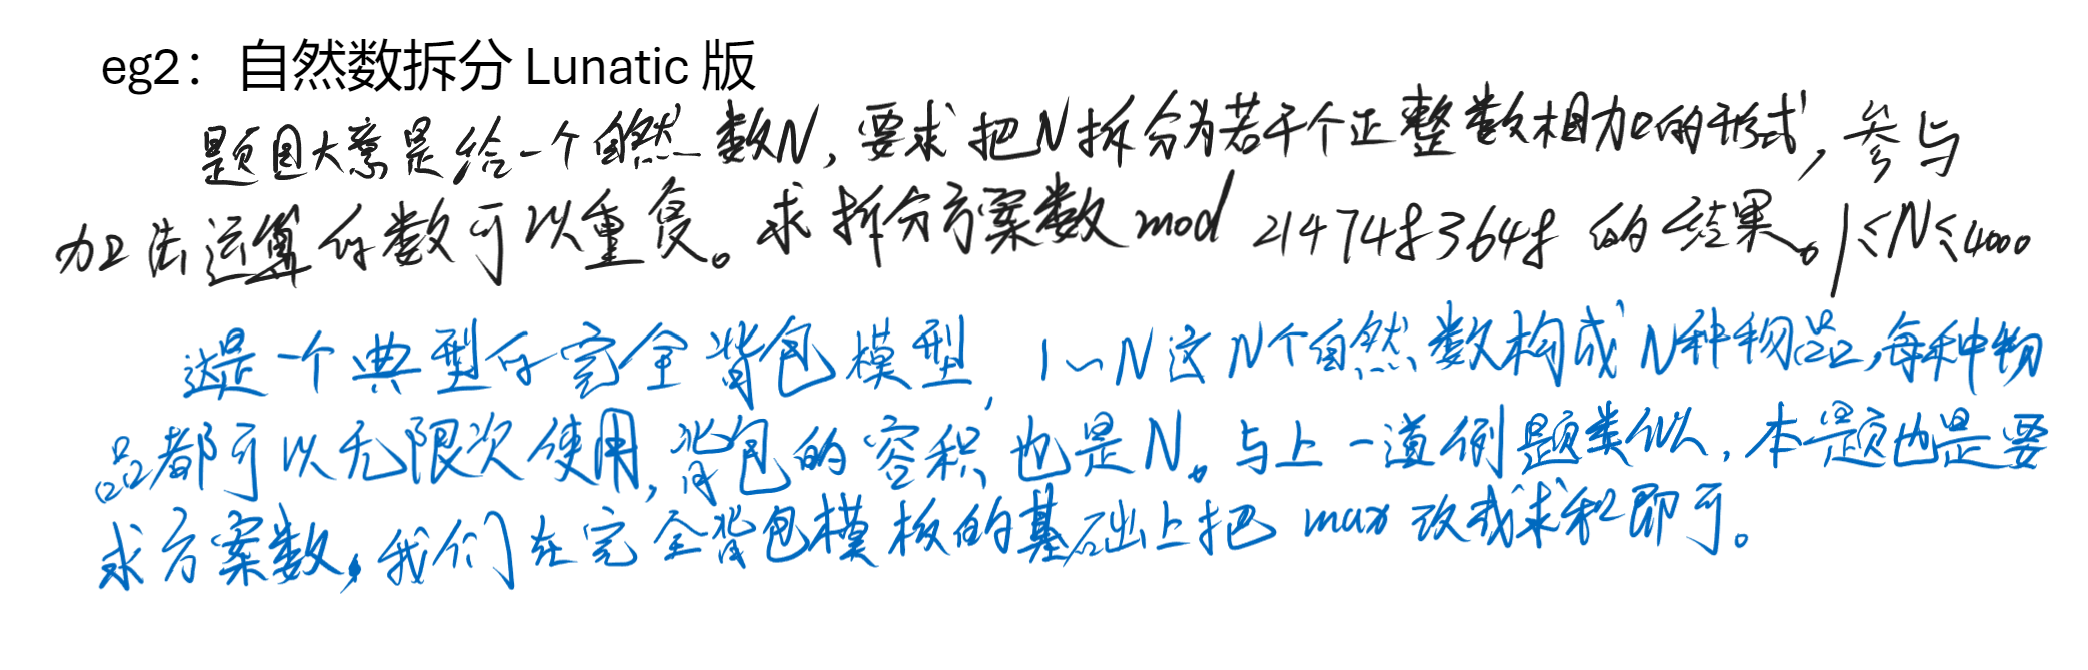 eg2：自然数拆分 Lunatic 版
题目大意是给一个自然数N，要求把N拆分为若干个正整数相加的形式，参与
加法运算的数可以重复。求拆分方案数 mod 2147483648 的结果。1≤N≤4000
这是一个典型的完全背包模型，1~N这N个自然数构成N种物品，每种物
品都可以无限次使用，背包的容积也是N。与上一道例题类似，本题也是要
求方案数，我们在完全背包模板的基础上把 max 改成求和即可。